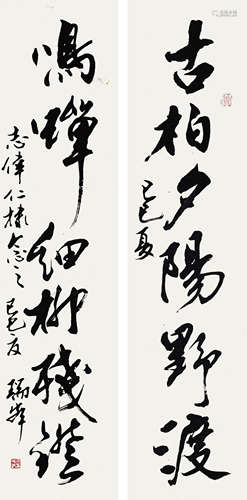 古柏夕陽野渡
己巳夏
鳴蟬細柳殘
志偉仁棣念之 己巳夏